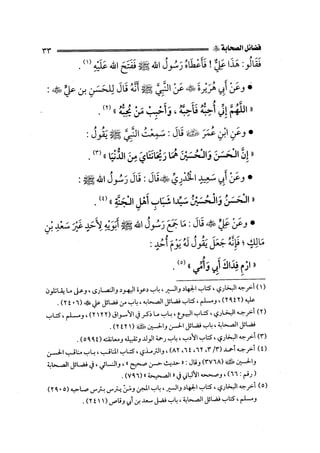 فضائل الصحابة ﷺ ٣٣
فقالوا: هَذَا عَلِيٌّ! فَأَعْطَاهُ رَسُولُ اللهِ ﷺ فَفَتَحَ اللهُ عَلَيْهِ (١).
• وعَنْ أَبِي هُرَيْرَةَ ﷺ عَنْ النَّبِيِّ ﷺ أَنَّهُ قَالَ لِلحَسَنِ بن عَلِيٍّ:
«اللَّهُمَّ إِنِّي أُحِبُّهُ فَأَحِبَّهُ، وَأَحِبَّ مَنْ يُحِبُّهُ» (٢).
• وعَنِ ابْنِ عُمَرَ قَالَ: سَمِعْتُ النَّبِيَّ ﷺ يَقُولُ:
«إِنَّ الحَسَنَ وَالحُسَيْنَ هُمَا رَيْحَانَتَايَ مِنَ الدُّنْيَا» (٣).
• وعَنْ أَبِي سَعِيدٍ الخُدْرِيِّ قَالَ: قَالَ رَسُولُ اللهِ ﷺ:
«الحَسَنُ وَالحُسَيْنُ سَيِّدَا شَبَابِ أَهْلِ الجَنَّةِ» (٤).
• وعَنْ عَلِيٍّ قَالَ: مَا جَمَعَ رَسُولُ اللهِ ﷺ أَبَوَيْهِ لِأَحَدٍ غَيْرَ سَعْدِ بْنِ
مَالِكٍ؛ فَإِنَّهُ جَعَلَ يَقُولُ لَهُ يَوْمَ أُحُدٍ:
«ارْمِ فِدَاكَ أَبِي وَأُمِّي» (٥).
(١) أخرجه البخاري، كتاب الجهاد والسير، باب دعوة اليهود والنصارى، وعلى ما يقاتلون
عليه (٢٩٤٢)، ومسلم، كتاب فضائل الصحابه، باب من فضائل علي (٢٤٠٦).
(٢) أخرجه البخاري، كتاب البيوع، باب ما ذكر في الأسواق (٢١٢٢)، ومسلم، كتاب
فضائل الصحابة، باب فضائل الحسن والحسين (٢٤٢١).
(٣) أخرجه البخاري، كتاب الأدب، باب رحمة الولد وتقبيله ومعانقته (٥٩٩٤).
(٤) أخرجه أحمد (٣/٣، ٦٢، ٦٤، ٨٢)، والترمذي، كتاب المناقب، باب مناقب الحسن
والحسين (٣٧٦٨) وقال: «حديث حسن صحيح»، والنسائي، في فضائل الصحابة
(رقم: ٦٦)، وصححه الألباني في «الصحيحة» (٧٩٦).
(٥) أخرجه البخاري، كتاب الجهاد والسير، باب المجن ومَنْ يترس بترس صاحبه (٢٩٠٥)
ومسلم، كتاب فضائل الصحابة، باب فضل سعد بن أبي وقاص (٢٤١١).